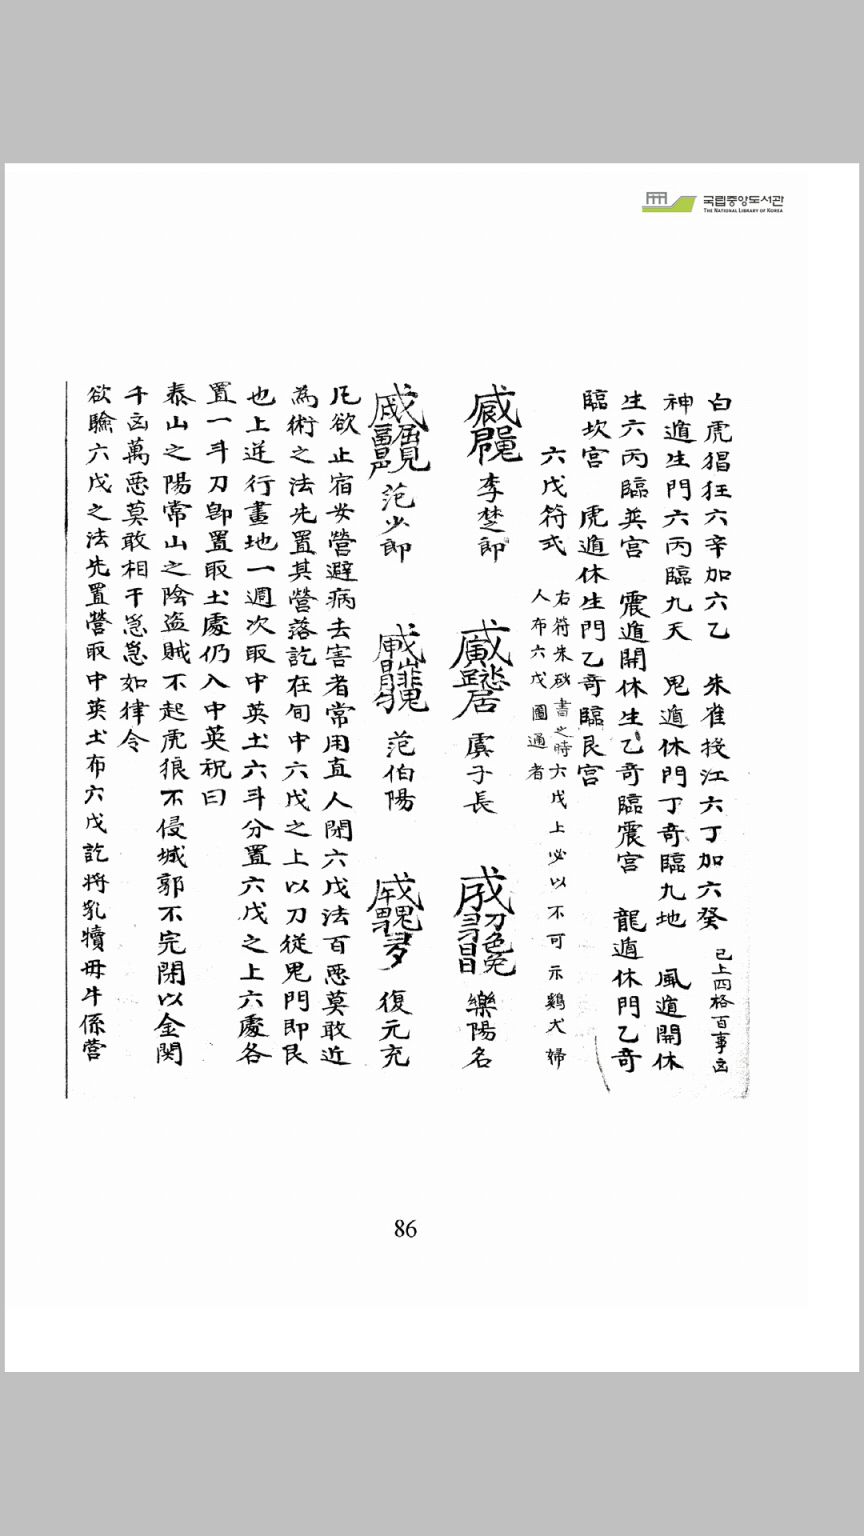 국립중앙도서관
THE NATIONAL LIBRARY OF KOREA
白虎猖狂六辛加六乙 朱雀投江六丁加六癸 已上四格百事凶
神遁生門六丙臨九天 鬼遁休門丁奇臨九地 風遁開休
生六丙臨英宮 震遁開休生乙奇臨震宮 龍遁休門乙奇
臨坎宮 虎遁休生門乙奇臨艮宮
六戊符式 右符朱砂書之時六戊上必以不可示鷄犬婦
人布六戊圖通者
李楚郎 虞子長 樂陽名
范少郎 范伯陽 復元充
凡欲止宿安營避病去害者常用直人閉六戊法百惡莫敢近
為術之法先置其營落訖在旬中六戊之上以刀從鬼門即艮
也上逆行畫地一週次取中英土六斗分置六戊之上六處各
置一斗刀卽置取土處仍入中英祝曰
泰山之陽常山之陰盗賊不起虎狼不侵城郭不完閉以金関
千凶萬惡莫敢相干急急如律令
欲騐六戊之法先置營取中英土布六戊訖將乳犢母牛係營
86